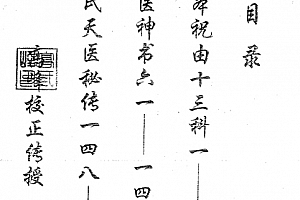 目录
本祝由十三科一——
医神书六一——一四
氏天医秘传一四八—
校正传授